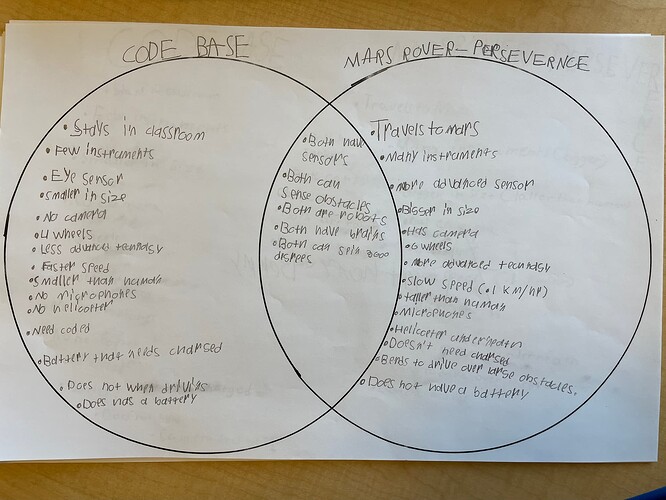 CODE BASE
MARS ROVER - PERSEVERNCE
• Stays in classroom
• Few instruments
• Eye sensor
• smaller in size
• No camera
• 4 wheels
• Less advanced tecnaogy
• Faster speed
• smaller than human
• No microphones
• No helicotter
• Need coded
• Battery that needs charged
• Does not when driving
• Does has a battery
• Both have
sensors
• Both can
sense obstacles
• Both are robots
• Both have brains
• Both can spin 3600
degrees
• Travels to mars
• Many instruments
• More advanced sensor
• Bigger in size
• Has camera
• 6 wheels
• More advanced tecnagy
• Slow speed (.1 km/hr)
• taller than human
• Microphones
• Helicotter underneath
• Doesn't need charged
• Bends to drive over large obstacles.
• Does not have a battery